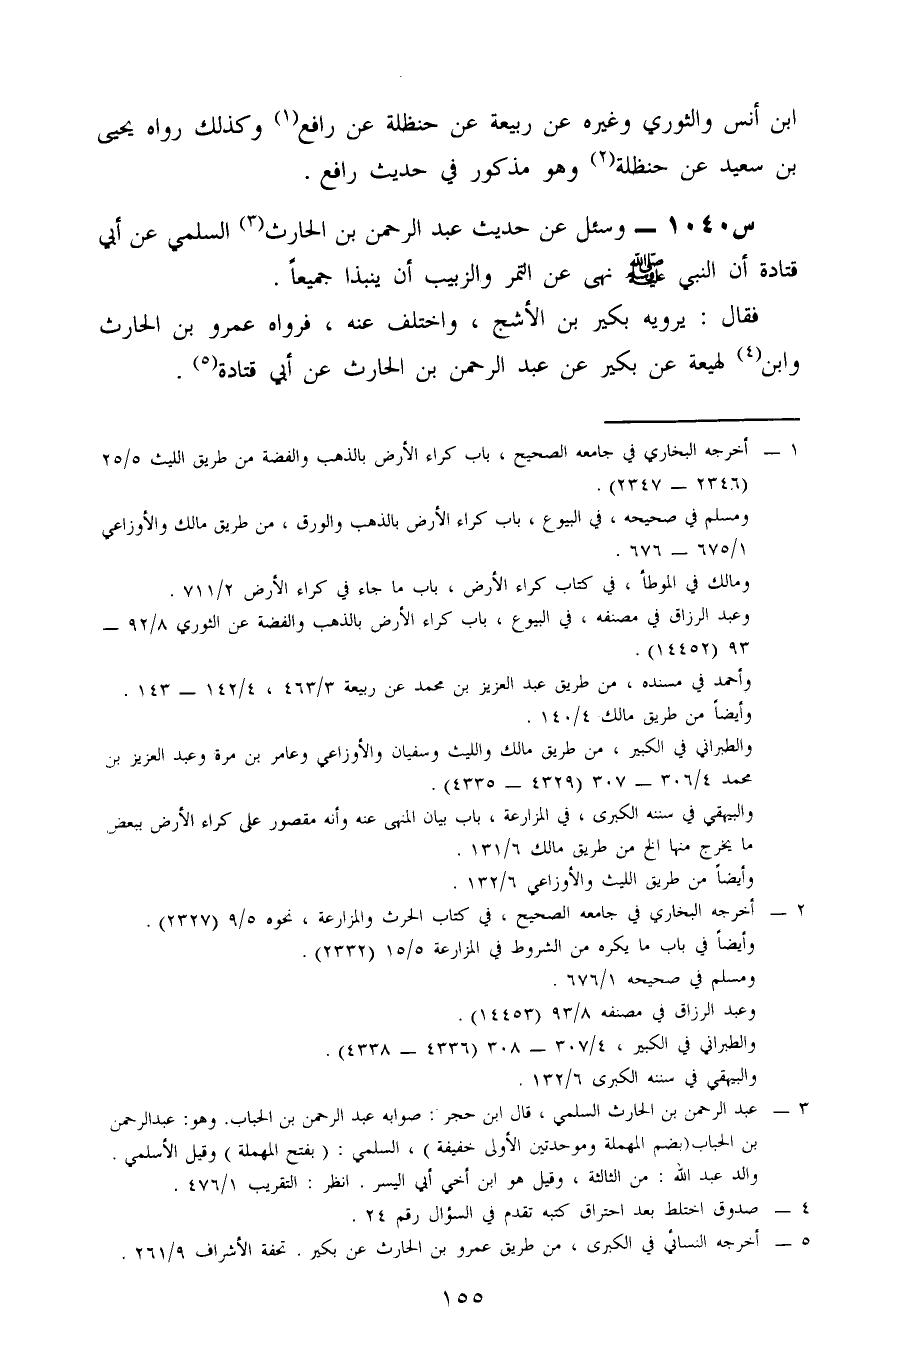 ابن أنس والثوري وغيره عن ربيعة عن حنظلة عن رافع(١) وكذلك رواه يحيى
بن سعيد عن حنظلة(٢) وهو مذكور في حديث رافع .
س١٠٤٠ ــ وسئل عن حديث عبد الرحمن بن الحارث(٣) السلمي عن أبي
قتادة أن النبي ﷺ نهى عن التمر والزبيب أن ينبذا جميعاً .
فقال : يرويه بكير بن الأشج ، واختلف عنه ، فرواه عمرو بن الحارث
وابن(٤) لهيعة عن بكير عن عبد الرحمن بن الحارث عن أبي قتادة(٥) .
١ ــ أخرجه البخاري في جامعه الصحيح ، باب كراء الأرض بالذهب والفضة من طريق الليث ٢٥/٥
(٢٣٤٦ ــ ٢٣٤٧) .
ومسلم في صحيحه ، في البيوع ، باب كراء الأرض بالذهب والورق ، من طريق مالك والأوزاعي
٦٧٥/١ ــ ٦٧٦ .
ومالك في الموطأ ، في كتاب كراء الأرض ، باب ما جاء في كراء الأرض ٧١١/٢ .
وعبد الرزاق في مصنفه ، في البيوع ، باب كراء الأرض بالذهب والفضة عن الثوري ٩٢/٨ ــ
٩٣ (١٤٤٥٢) .
وأحمد في مسنده ، من طريق عبد العزيز بن محمد عن ربيعة ٤٦٣/٣ ، ١٤٢/٤ ــ ١٤٣ .
وأيضاً من طريق مالك ١٤٠/٤ .
والطبراني في الكبير ، من طريق مالك والليث وسفيان والأوزاعي وعامر بن مرة وعبد العزيز بن
محمد ٣٠٦/٤ ــ ٣٠٧ (٤٣٢٩ ــ ٤٣٣٥) .
والبيهقي في سننه الكبرى ، في المزارعة ، باب بيان المنهى عنه وأنه مقصور على كراء الأرض ببعض
ما يخرج منها الخ من طريق مالك ١٣١/٦ .
وأيضاً من طريق الليث والأوزاعي ١٣٢/٦ .
٢ ــ أخرجه البخاري في جامعه الصحيح ، في كتاب الحرث والمزارعة ، نحوه ٩/٥ (٢٣٢٧) .
وأيضاً في باب ما يكره من الشروط في المزارعة ١٥/٥ (٢٣٣٢) .
ومسلم في صحيحه ٦٧٦/١ .
وعبد الرزاق في مصنفه ٩٣/٨ (١٤٤٥٣) .
والطبراني في الكبير ، ٣٠٧/٤ ــ ٣٠٨ (٤٣٣٦ ــ ٤٣٣٨) .
والبيهقي في سننه الكبرى ١٣٢/٦ .
٣ ــ عبد الرحمن بن الحارث السلمي ، قال ابن حجر : صوابه عبد الرحمن بن الحباب. وهو: عبدالرحمن
بن الحباب(بضم المهملة وموحدتين الأولى خفيفة ) ، السلمي : ( بفتح المهملة ) وقيل الأسلمي .
والد عبد الله : من الثالثة ، وقيل هو ابن أخي أبي اليسر . انظر : التقريب ٤٧٦/١ .
٤ ــ صدوق اختلط بعد احتراق كتبه تقدم في السؤال رقم ٢٤ .
٥ ــ أخرجه النسائي في الكبرى ، من طريق عمرو بن الحارث عن بكير . تحفة الأشراف ٢٦١/٩ .
١٥٥